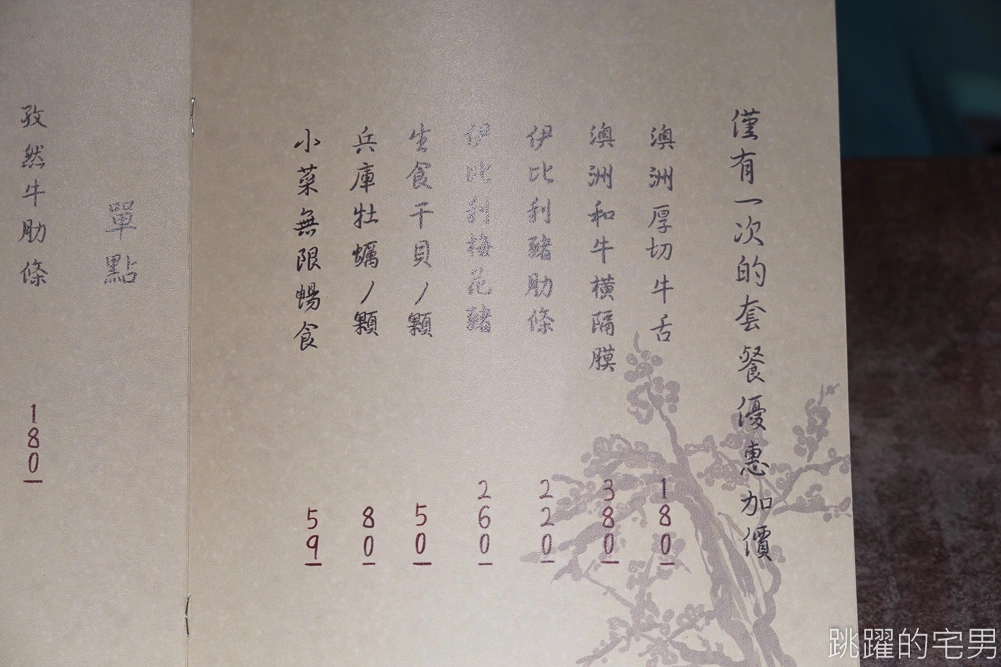 僅有一次的套餐優惠加價
澳洲厚切牛舌 180
澳洲和牛橫隔膜 380
伊比利豬肋條 220
伊比利梅花豬 260
生食干貝/顆 50
兵庫牡蠣/顆 80
小菜無限暢食 59
單點
孜然牛肋條 180
跳躍的宅男